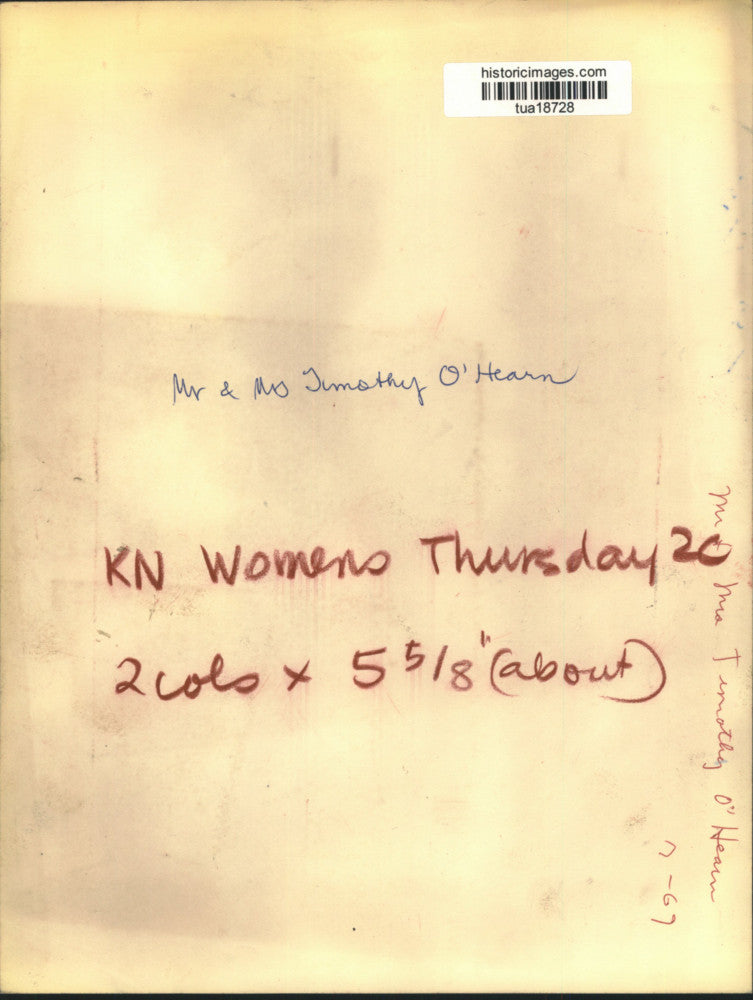 historicimages.com
tua18728
Mr & Mrs Timothy O'Hearn
KN Womens Thursday 20
2 cols x 5 5/8" (about)
Mr & Mrs Timothy O'Hearn
7-69